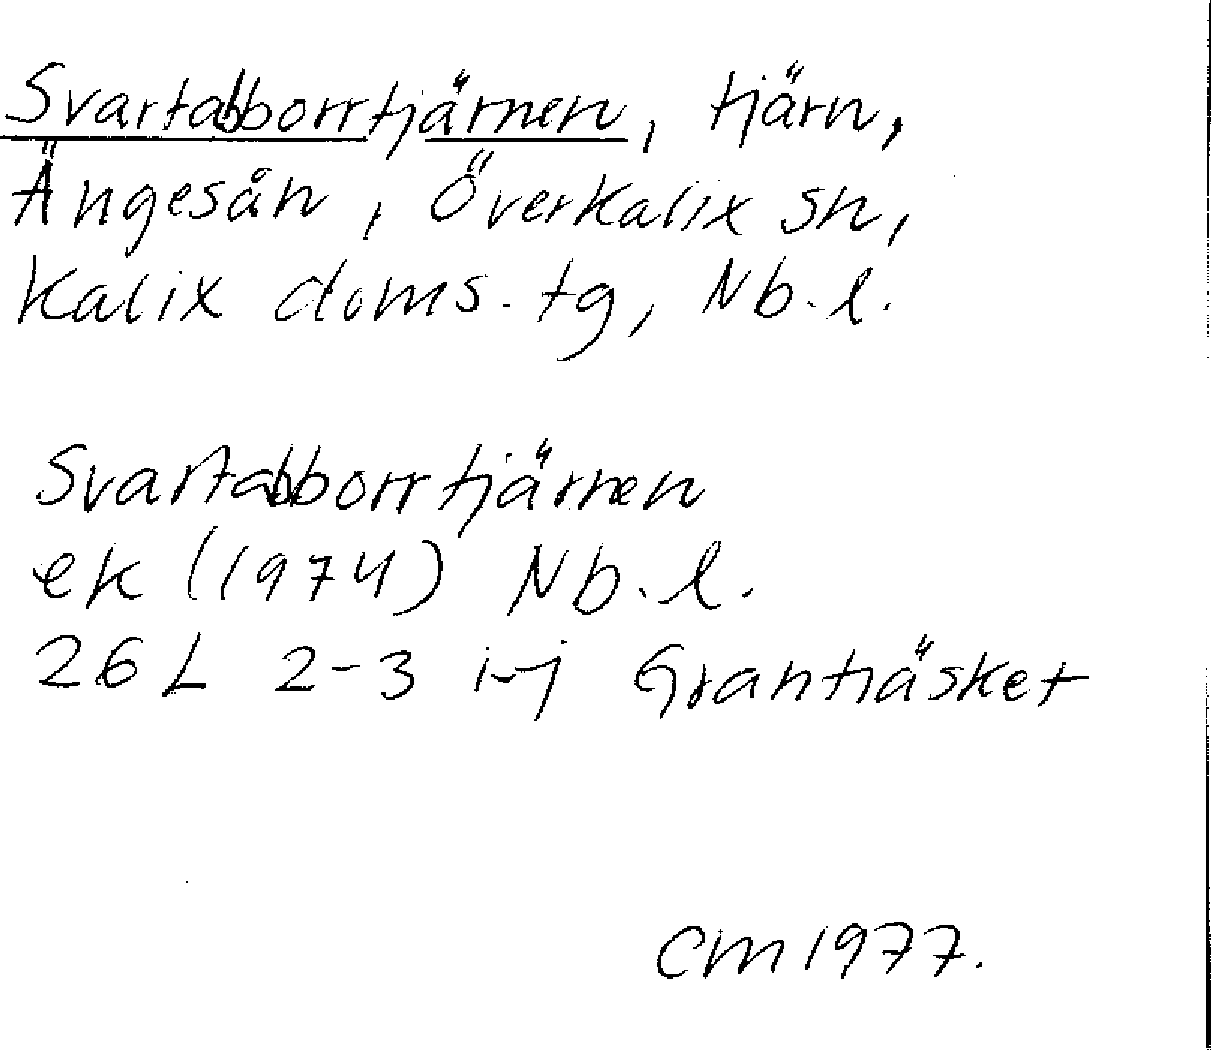 Svartabborrtjärnen, tjärn,
Ängesån, Överkalix sn,
Kalix doms. tg, Nb. l.
Svartabborrtjärnen
ek (1974) Nb. l.
26 L 2-3 i-j Granträsket
CM 1977.